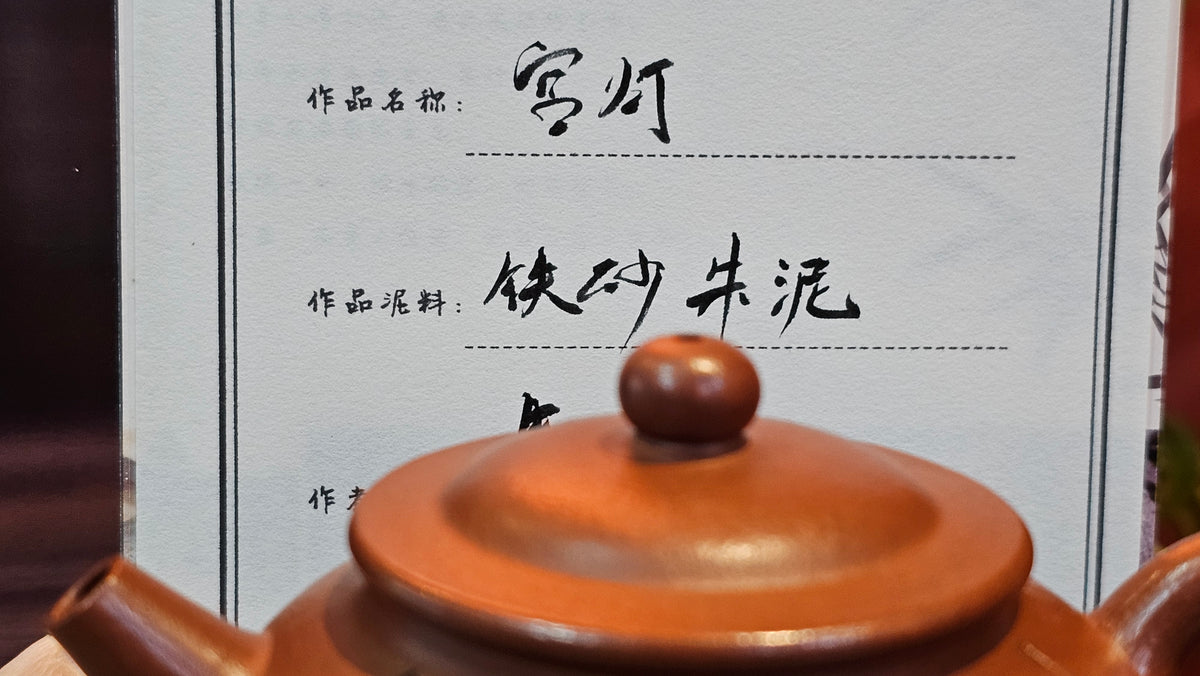 作品名称：宫灯
作品泥料：铁砂朱泥
作者